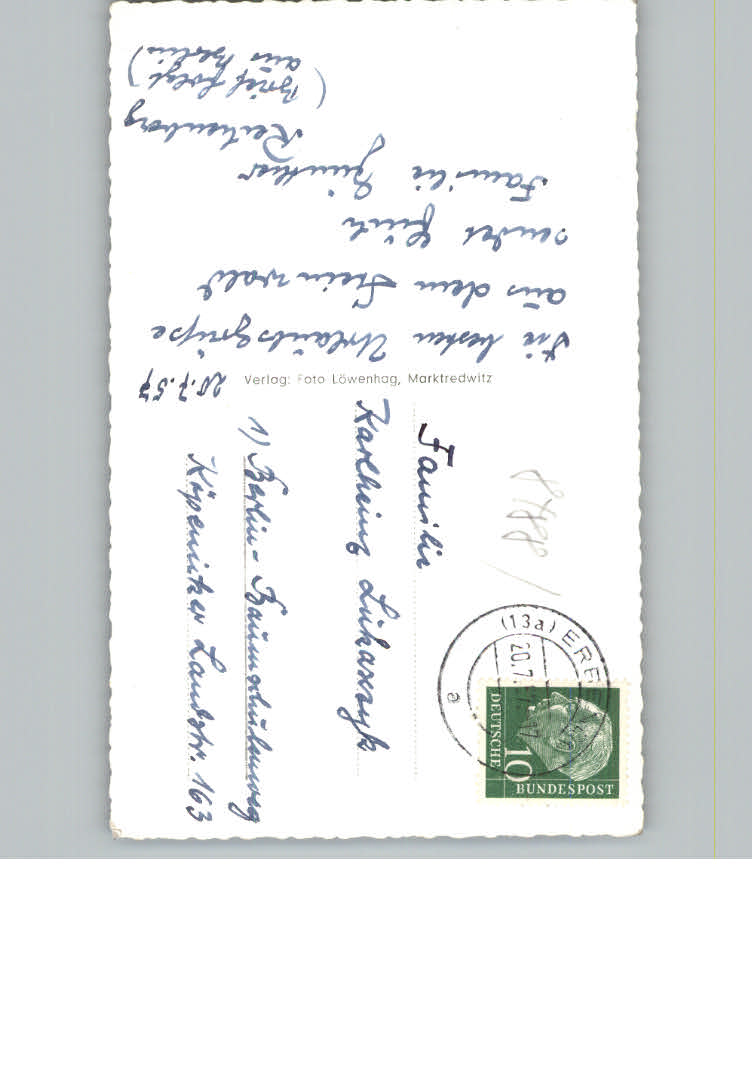 20.7.57
Die besten Urlaubsgrüße
aus dem Steinwald
sendet Euch
Familie Günther
Reichenborg
(Brief folgt
aus Berlin)
Verlag: Foto Löwenhag, Marktredwitz
Familie
Karlheinz Lukaszyk
1) Berlin-Baumschulenweg
Köpenicker Landstr. 163
8788
(13a) ERB
20.7.
a
DEUTSCHE
10
BUNDESPOST